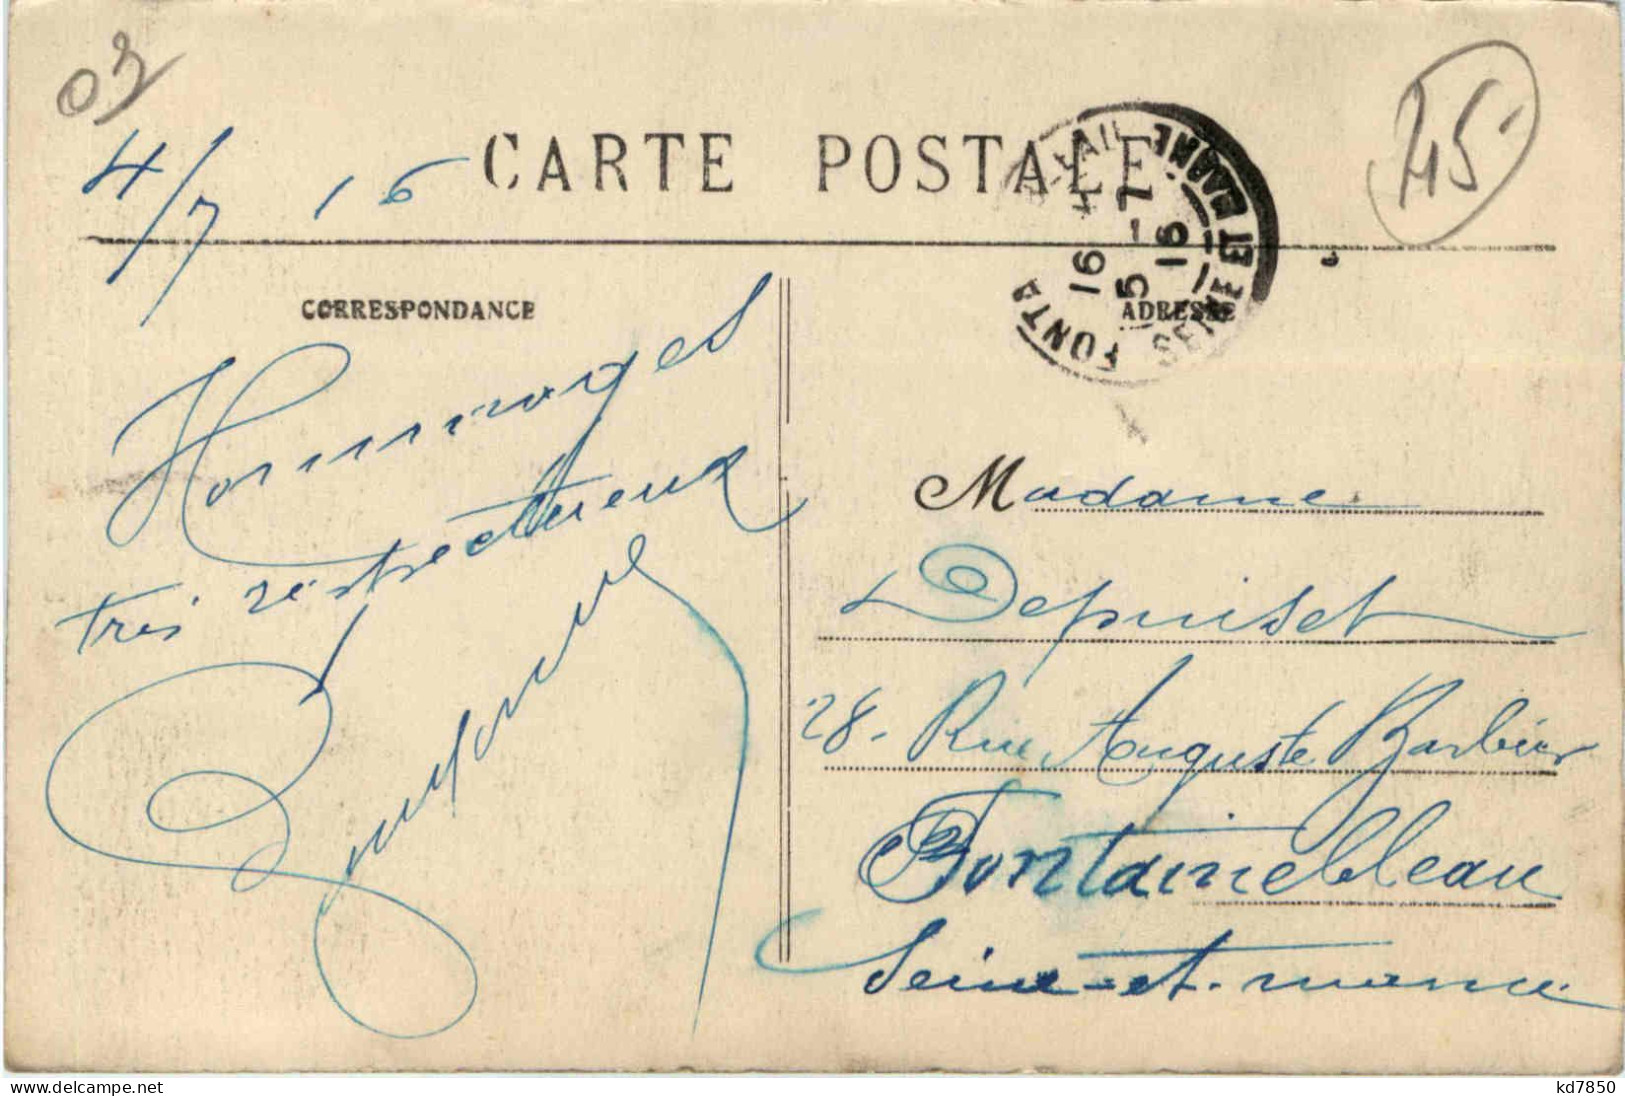 03
45
4/7 16
CARTE POSTALE
FONTA
SEINE ET MARNE
16
5 - 7
16
CORRESPONDANCE
ADRESSE
Hommages
très respectueux
Madame
Depuiset
28. Rue Auguste Barbier
Fontainebleau
Seine-et-marne
delcampe.net
kd7850